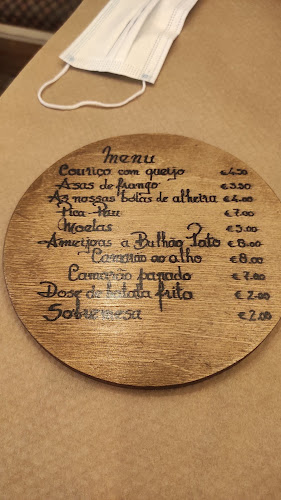 Menu
Couriço com queijo €4.50
Asas de frango €3.50
As nossas bolas de alheira €4.00
Pica-Pau €7.00
Moelas €5.00
Ameijoas à Bulhão Pato €8.00
Camarão ao alho €8.00
Camarão panado €7.00
Dose de batata frita €2.00
Sobremesa €2.00